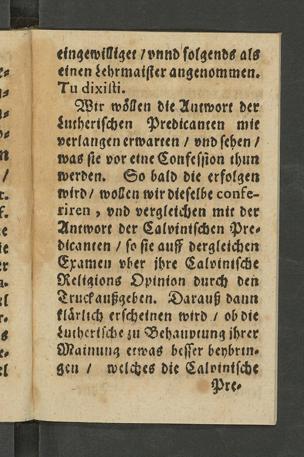 eingewilliget / vnnd folgends als
einen Lehrmaister angenommen.
Tu dixisti.
Wir wöllen die Antwort der
Lutherischen Predicanten mit
verlangen erwarten / vnd sehen /
was sie vor eine Confession thun
werden. So bald die erfolgen
wird / wollen wir dieselbe confe-
riren, vnd vergleichen mit der
Antwort der Calvinischen Pre-
dicanten / so sie auff dergleichen
Examen vber ihre Calvinische
Religions Opinion durch den
Truck außgeben. Darauß dann
klärlich erscheinen wird / ob die
Lutherische zu Behauptung jhrer
Mainung etwas besser beybrin-
gen / welches die Calvinische
Pre-